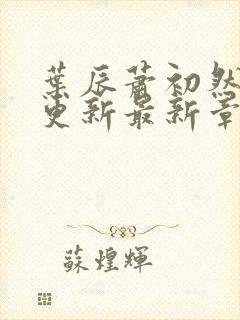 葉辰蕭初然
更新最新章
蘇煌輝